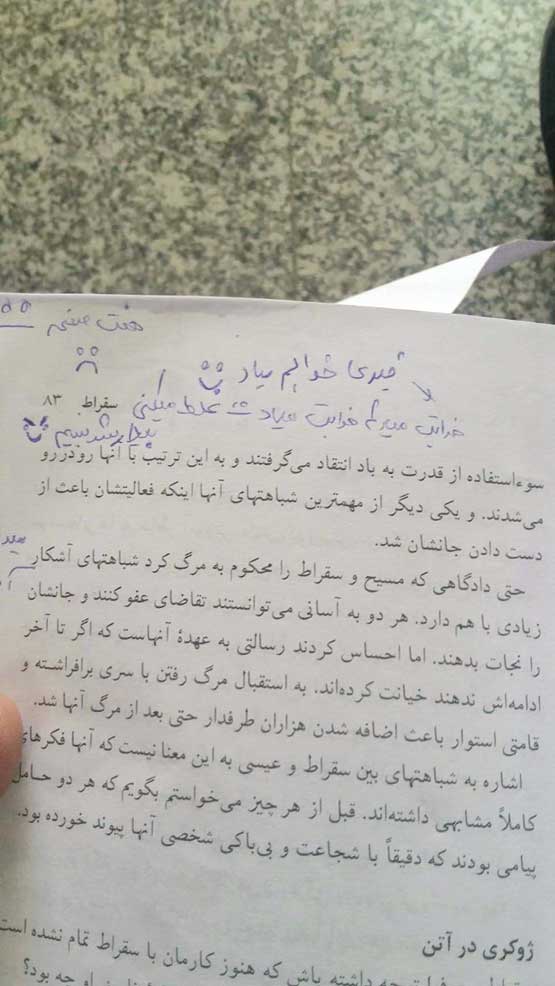 هفت صفحه
قیدی خوابم میاد
خوابت میبره خوابت میاد غلط میکنی
سقراط ۸۳
سوءاستفاده از قدرت به باد انتقاد می‌گرفتند و به این ترتیب با آنها رودررو
می‌شدند. و یکی دیگر از مهمترین شباهتهای آنها اینکه فعالیتشان باعث از
دست دادن جانشان شد.
حتی دادگاهی که مسیح و سقراط را محکوم به مرگ کرد شباهتهای آشکار
زیادی با هم دارد. هر دو به آسانی می‌توانستند تقاضای عفو کنند و جانشان
را نجات بدهند. اما احساس کردند رسالتی به عهدهٔ آنهاست که اگر تا آخر
ادامه‌اش ندهند خیانت کرده‌اند. به استقبال مرگ رفتن با سری برافراشته و
قامتی استوار باعث اضافه شدن هزاران طرفدار حتی بعد از مرگ آنها شد.
اشاره به شباهتهای بین سقراط و عیسی به این معنا نیست که آنها فکرهای
کاملاً مشابهی داشته‌اند. قبل از هر چیز می‌خواستم بگویم که هر دو حامل
پیامی بودند که دقیقاً با شجاعت و بی‌باکی شخصی آنها پیوند خورده بود.
ژوکری در آتن
داشته باش که هنوز کارمان با سقراط تمام نشده است
او چه بود؟